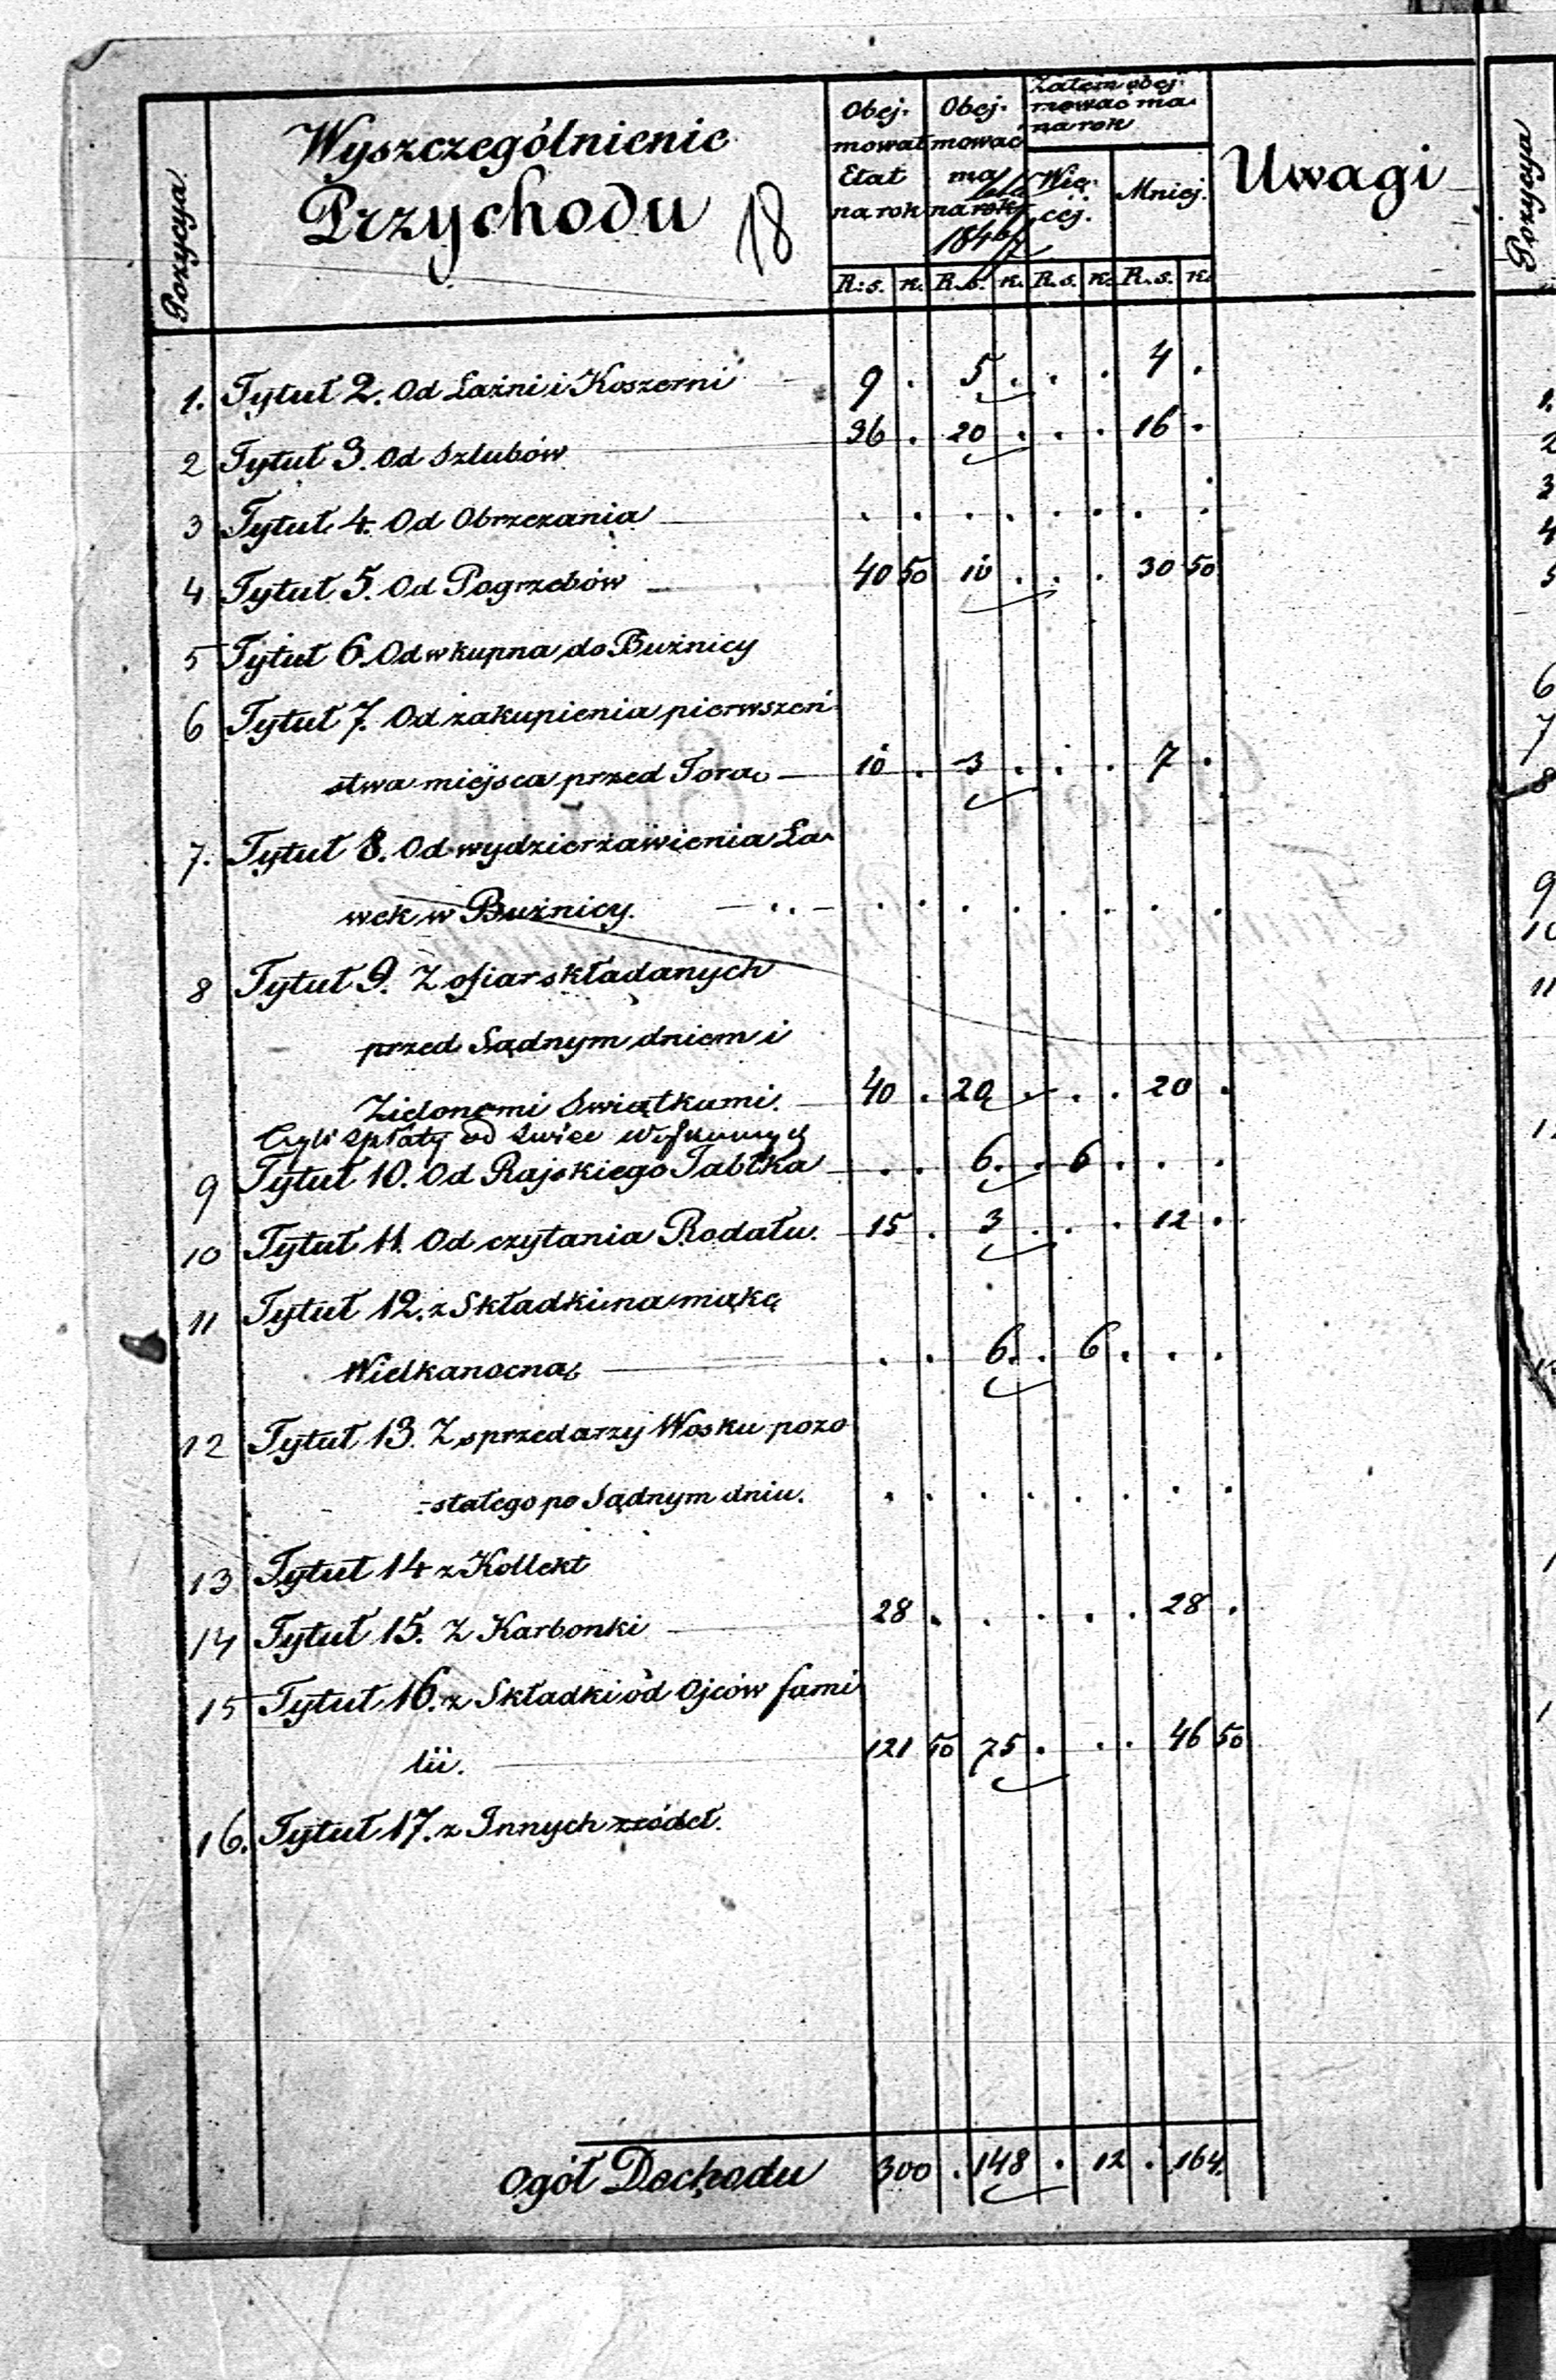 Pozycya.
Wyszczególnienie
Przychodu
18
Obej-
mował
Etat
na rok
Obej-
mować
ma
na rok
184
Zatem obej-
mować ma
na rok
Wię-
cej.
Mniej.
Uwagi
R: s. k. R. s. k. R. s. k. R. s. k.
1. Tytuł 2. Od Łaźni i Koszerni 9 . 5 . . . 4 .
2 Tytuł 3. Od Szlubów 36 . 20 . . . 16 .
3 Tytuł 4. Od Obrzezania . . . . . . . .
4 Tytuł 5. Od Pogrzebów 40 50 10 . . . 30 50
5 Tytuł 6. Od wkupna do Bużnicy
6 Tytuł 7. Od zakupienia pierwszeń
stwa miejsca przed Torą 10 . 3 . . . 7 .
7. Tytuł 8. Od wydzierżawienia Ła-
wek w Bużnicy. . . . . . . . .
8 Tytuł 9. Z ofiar składanych
przed Sądnym dniem i
Zielonemi Swiątkami. 40 . 20 . . . 20 .
Czyli Spłaty od Swiec Woskowych
9 Tytuł 10. Od Rajskiego Jabłka . . 6 . 6 . . .
10 Tytuł 11. Od czytania Rodału. 15 . 3 . . . 12 .
11 Tytuł 12. z Składki na mąkę
Wielkanocną . . 6 . 6 . . .
12 Tytuł 13. Z sprzedarzy Wosku pozo
-stałego po Sądnym dniu. . . . . . . . .
13 Tytuł 14 z Kollekt
14 Tytuł 15. Z Karbonki 28 . . . . . 28 .
15 Tytuł 16. z Składki od Ojców fami
lii. 121 50 75 . . . 46 50
16. Tytuł 17. z Innych zródeł.
Ogół Dochodu 300 . 148 . 12 . 164.
Pozycya